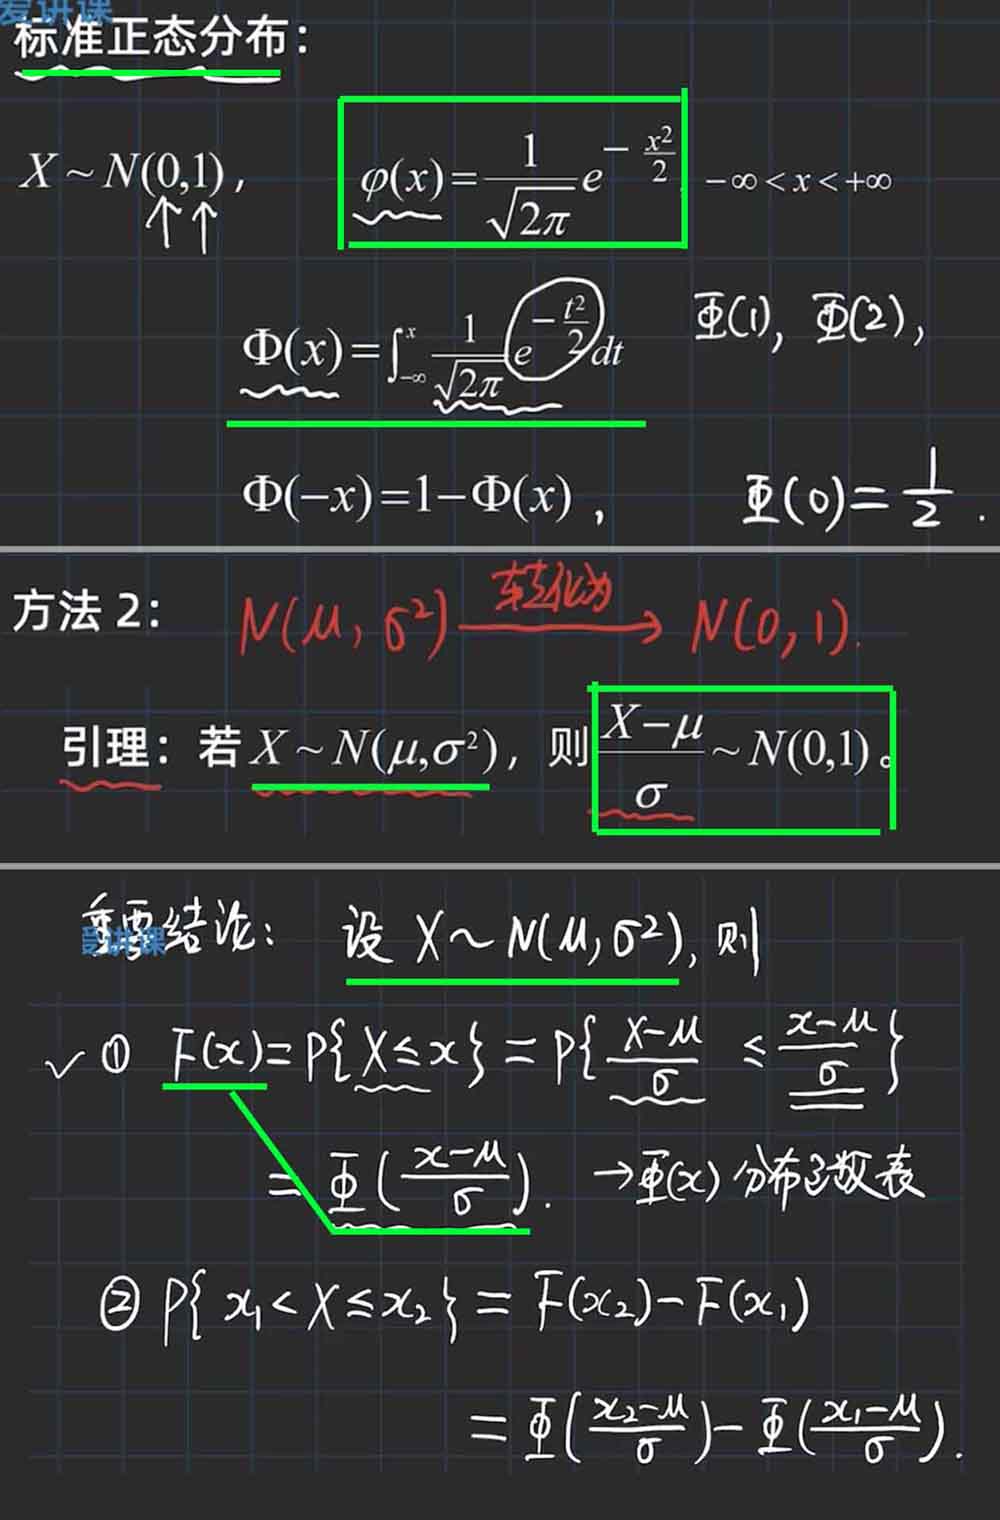 爱讲课
标准正态分布：
X ~ N(0,1), φ(x)=1/√(2π) e^(−x²/2), −∞<x<+∞
Φ(x)=∫_{−∞}^{x} 1/√(2π) e^(−t²/2) dt Φ(1), Φ(2),
Φ(−x)=1−Φ(x), Φ(0)=1/2.
方法 2： N(μ, σ²) 转化为 → N(0, 1).
引理：若 X ~ N(μ,σ²)，则 (X−μ)/σ ~ N(0,1)。
重要结论： 设 X~N(μ, σ²), 则
爱讲课
✓ ① F(x)=P{X≤x}=P{(X−μ)/σ ≤ (x−μ)/σ}
=Φ((x−μ)/σ). →Φ(x) 分布函数表
② P{x₁<X≤x₂}=F(x₂)−F(x₁)
=Φ((x₂−μ)/σ)−Φ((x₁−μ)/σ).